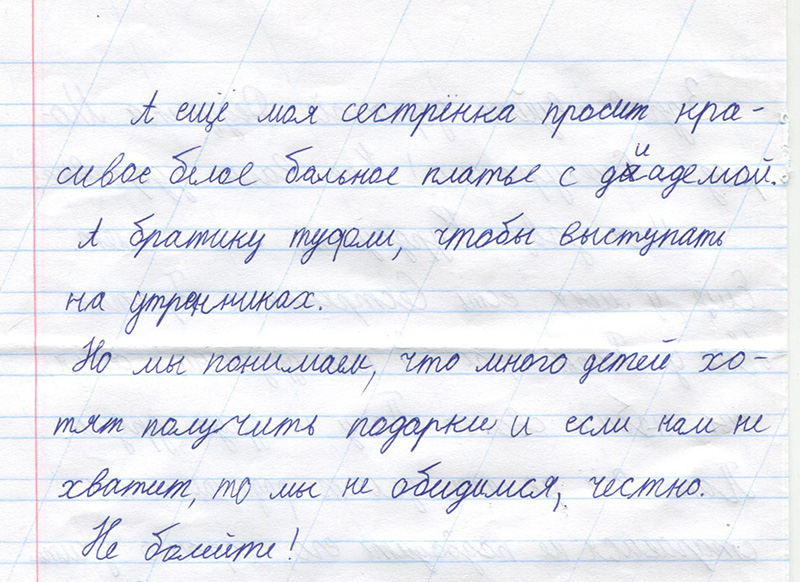 А ещё моя сестрёнка просит кра-
сивое белое бальное платье с диадемой.
А братику туфли, чтобы выступать
на утренниках.
Но мы понимаем, что много детей хо-
тят получить подарки и если нам не
хватит, то мы не обидимся, честно.
Не болейте!